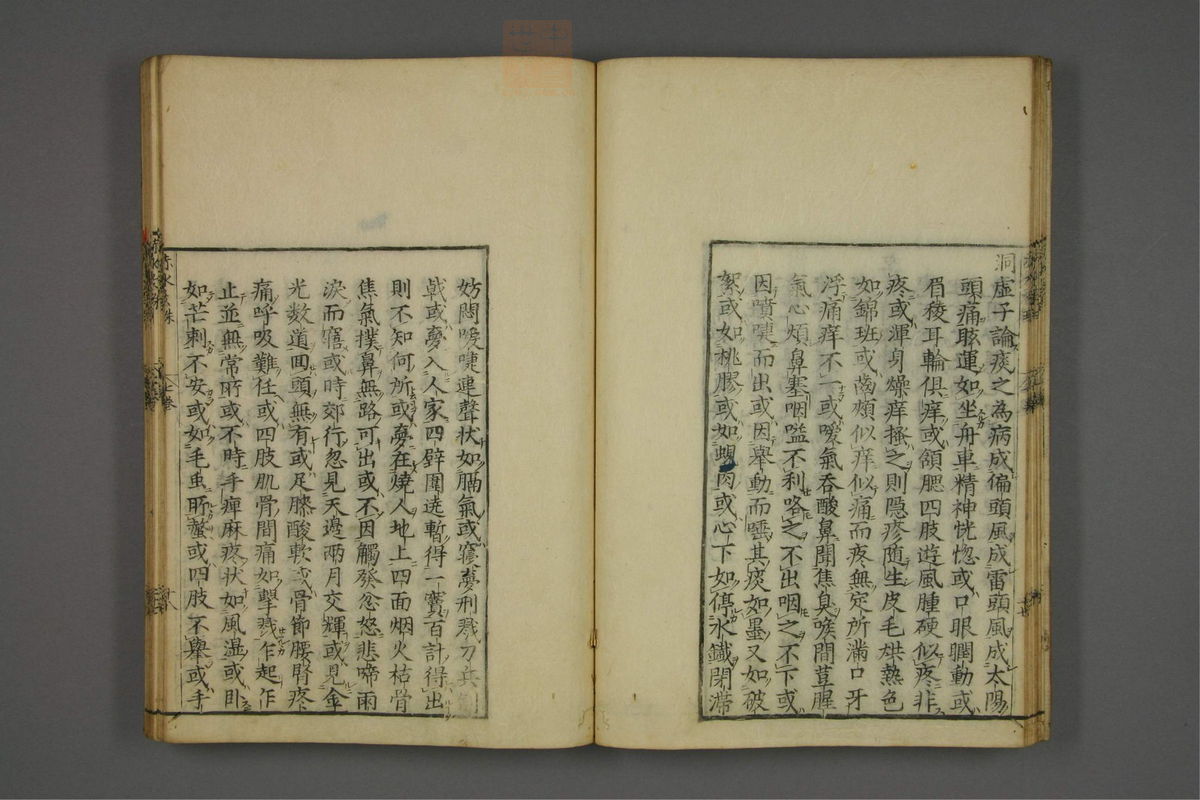 洞虛子論痰之為病成偏頭風成雷頭風成太陽
頭痛眩運如坐舟車精神恍惚或口眼瞤動或
眉稜耳輪俱痒或頷腮四肢遊風腫硬似疼非
疼或渾身燥痒搔之則隱疹随生皮毛烘熱色
如錦班或齒頰似痒似痛而疼無定所滿口牙
浮痛痒不一或噯氣吞酸鼻聞焦臭喉間荳腥
氣心煩鼻塞咽嗌不利咯之不出咽之不下或
因噴嚏而出或因舉動而唾其痰如墨又如破
絮或如桃膠或如蜆肉或心下如停氷鐵閉滯
妨悶噯嚏連聲狀如膈氣或寢夢刑戮刀兵劍
戟或夢入人家四壁圍遶暫得一竇百計得出
則不知何所或夢在燒人地上四面烟火枯骨
焦氣撲鼻無路可出或不因觸發忿怒悲啼雨
淚而寤或時郊行忽見天邊兩月交輝或見金
光数道囬頭無有或足膝酸軟或骨節腰腎疼
痛呼吸難任或四肢肌骨間痛如擊戳乍起乍
止並無常所或不時手痺麻疼狀如風湿或卧
如芒刺不安或如毛虫所螫或四肢不舉或手
赤水玄珠
七卷
十八